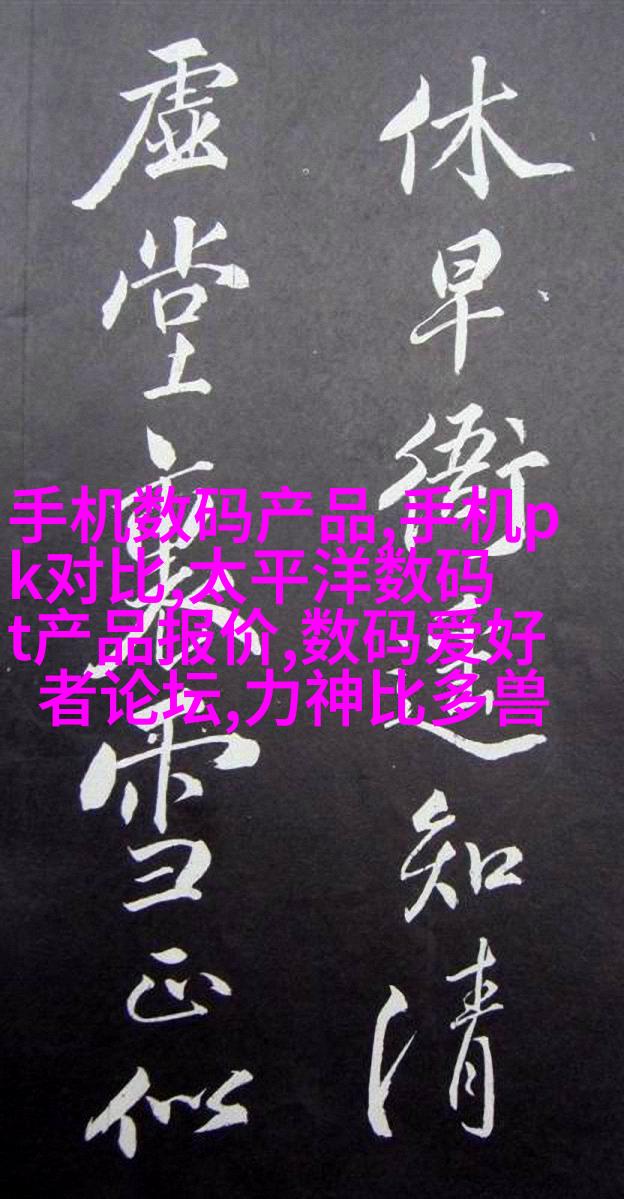 休早衙遥知清
虚堂裏雪正似
手机数码产品,手机p
k对比,太平洋数码
t产品报价,数码爱好
者论坛,力神比多兽